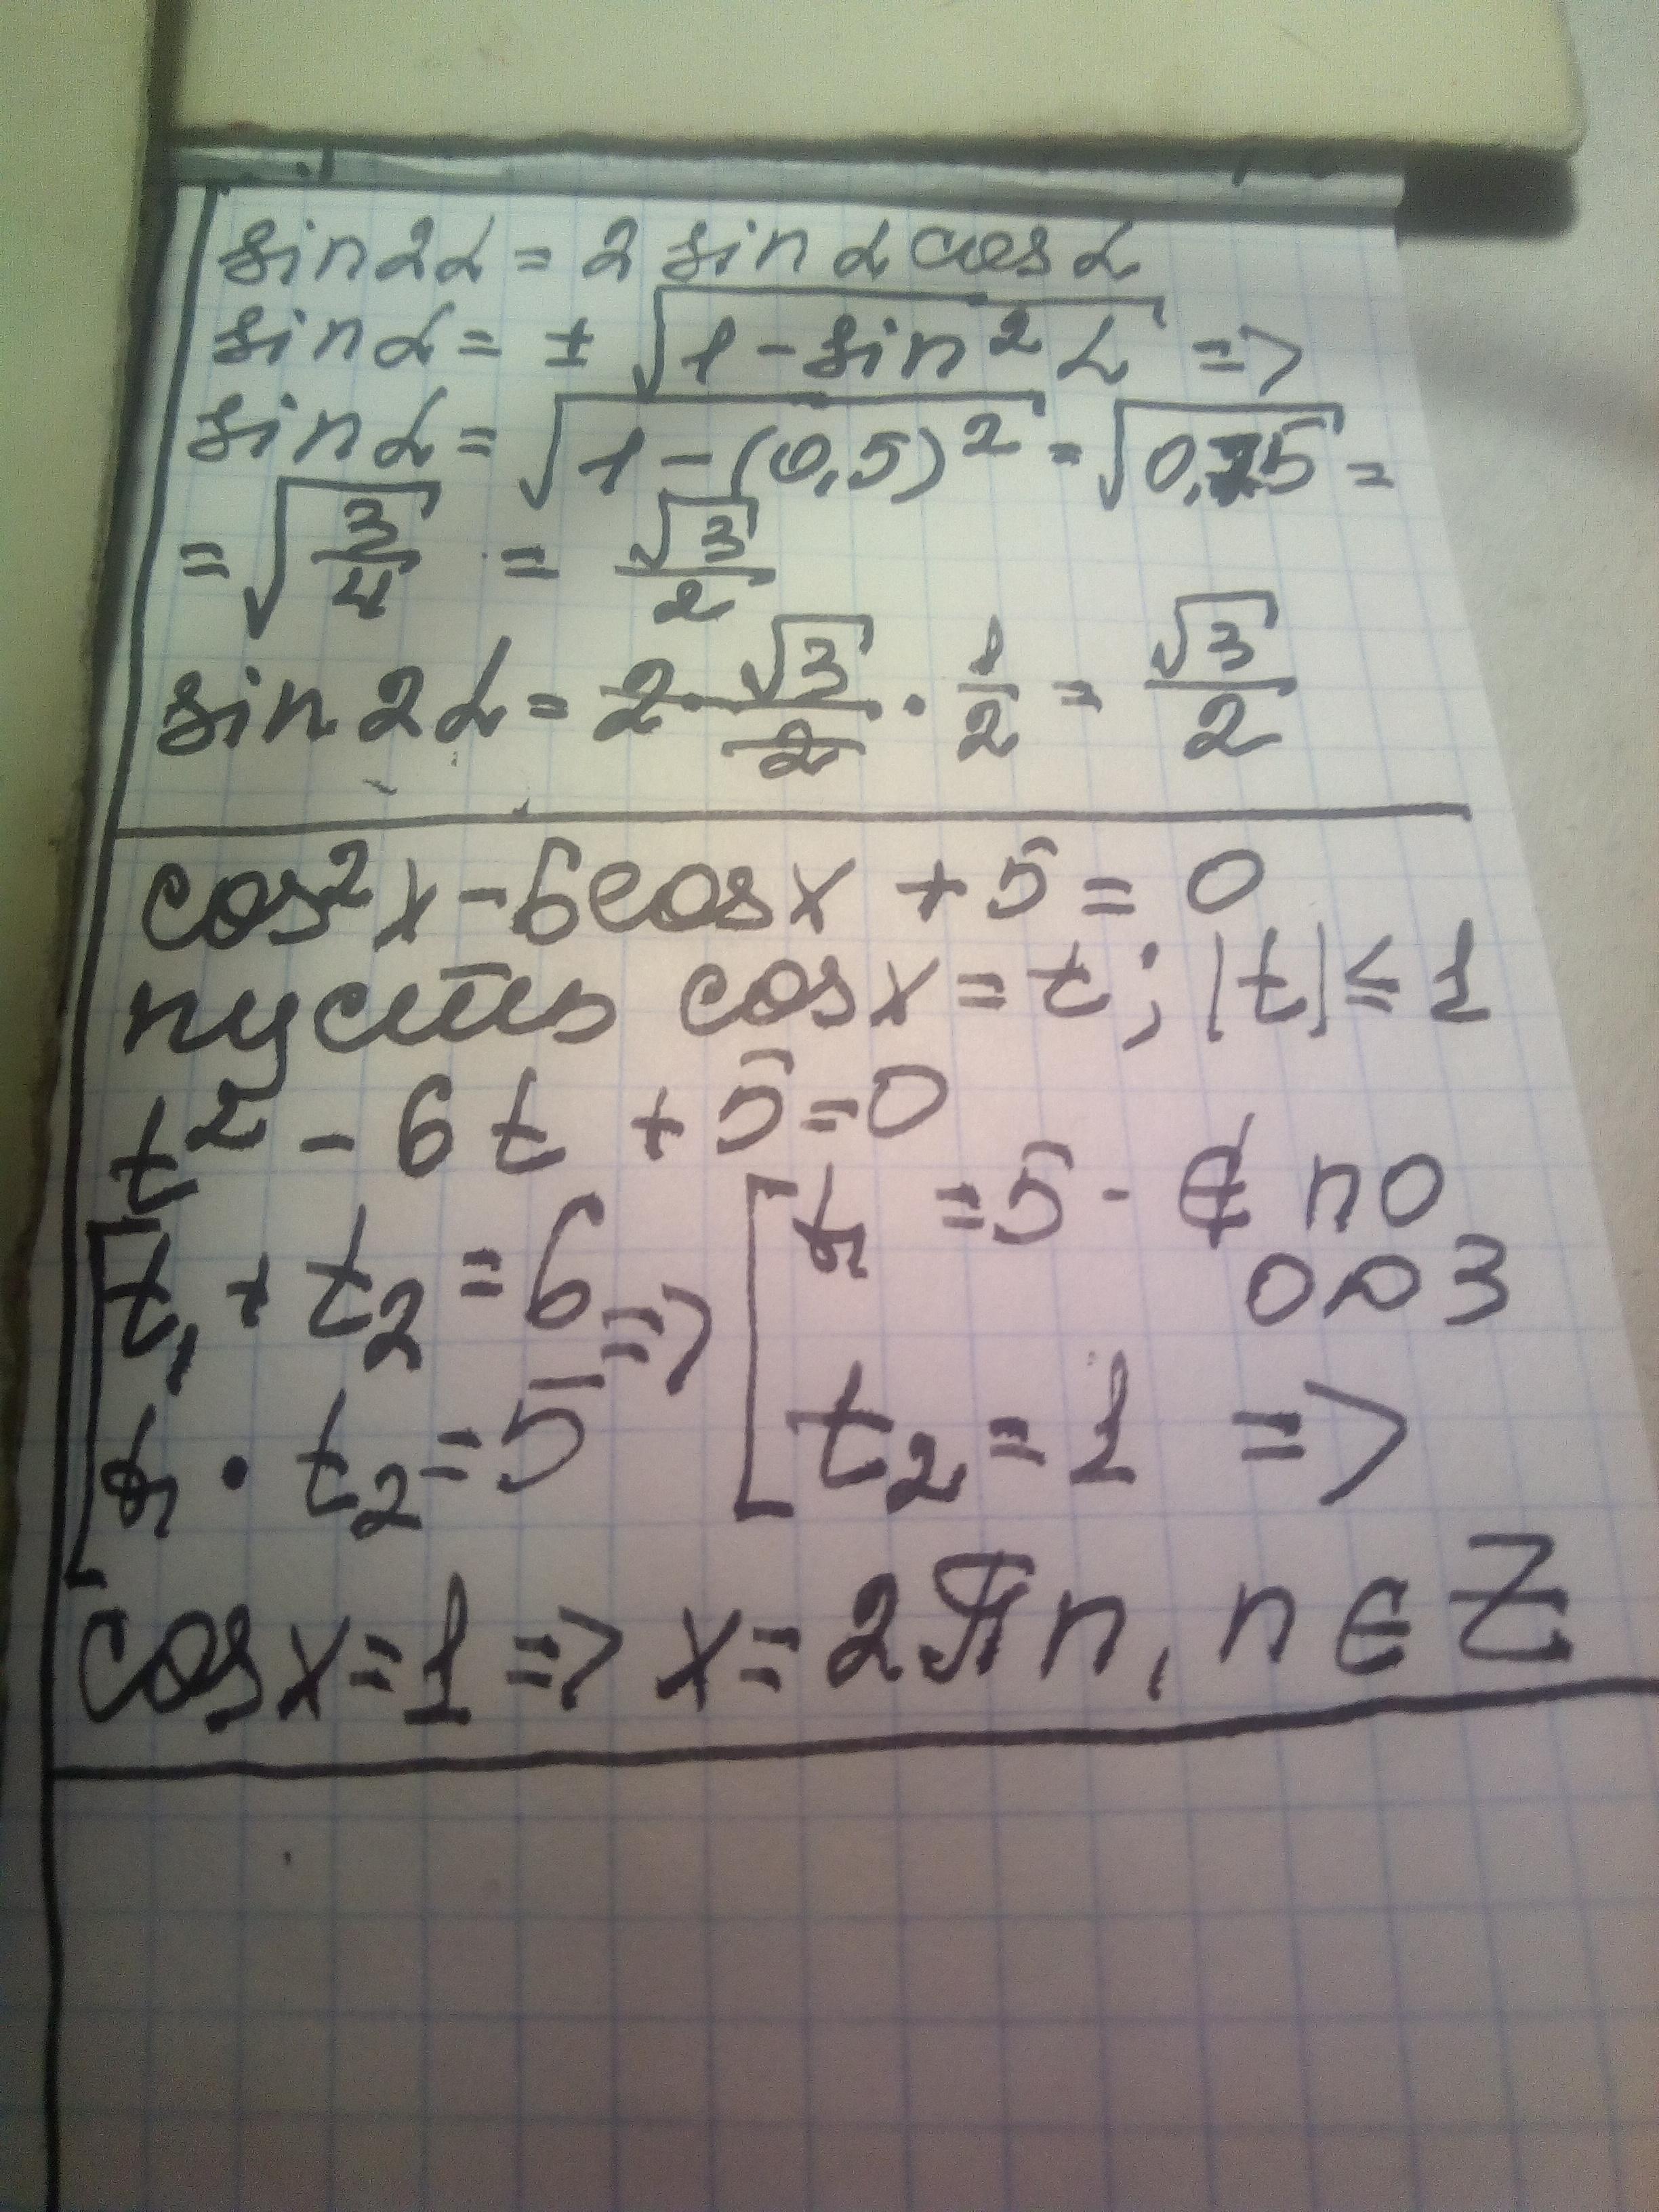 sin2α = 2 sin α cos α
sin α = ± √(1 - sin² α) =>
sin α = √(1 - (0,5)²) = √(0,75) =
= √(3/4) = √3/2
sin 2α = 2 · √3/2 · 1/2 = √3/2
cos²x - 6cosx + 5 = 0
пусть cosx = t; |t| ≤ 1
t² - 6t + 5 = 0
[t₁ + t₂ = 6 => [t₁ = 5 - ∉ по
ООЗ
t₁ · t₂ = 5 t₂ = 1 =>
cosx = 1 => x = 2πn, n ∈ Z